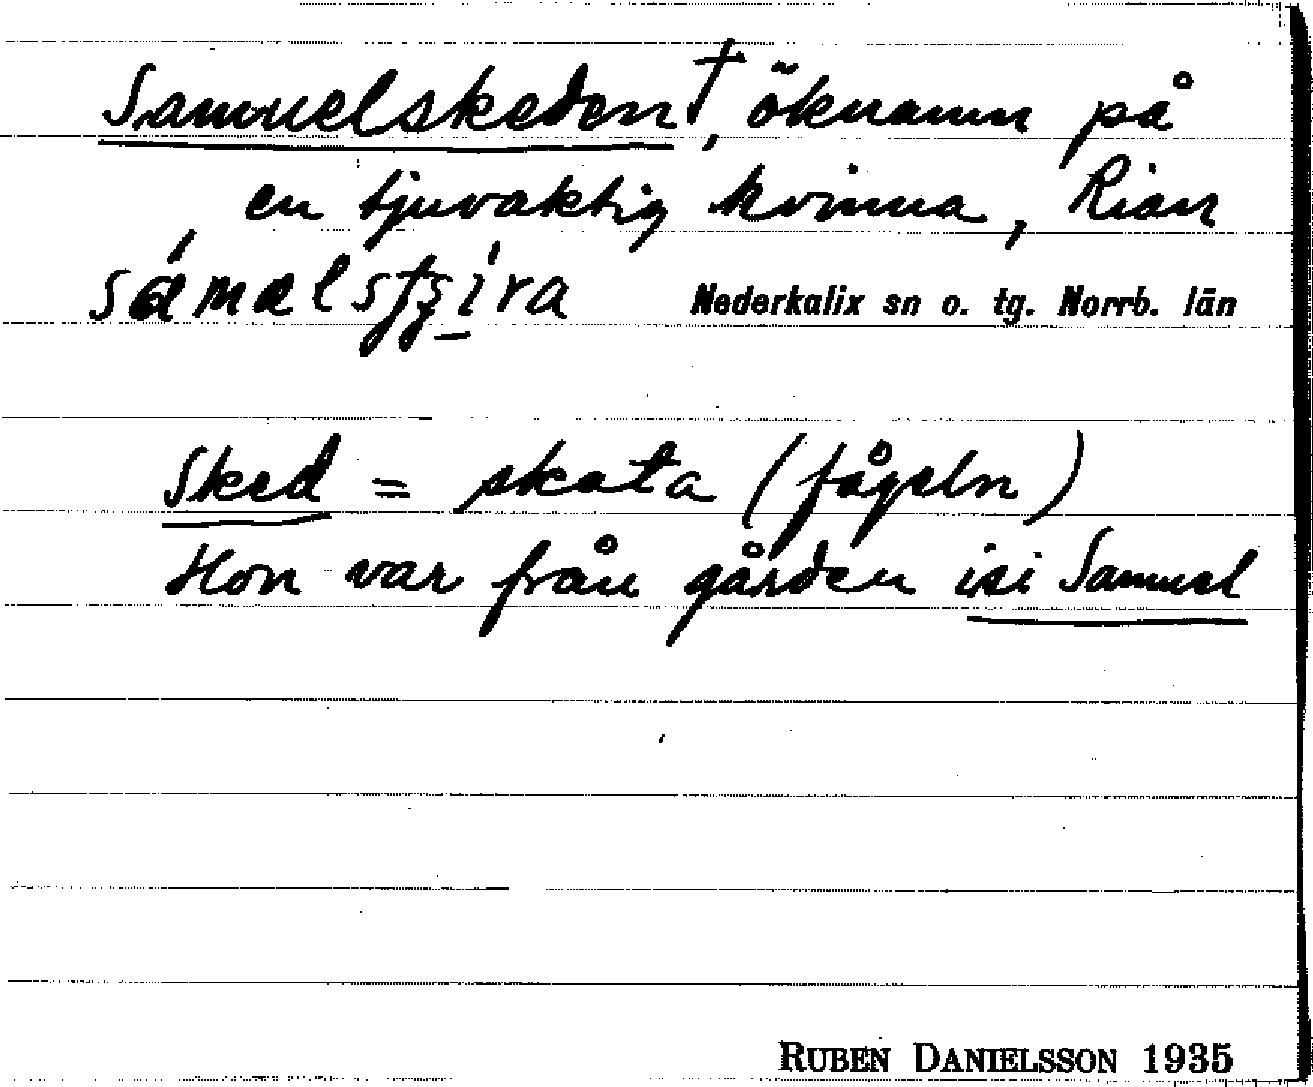 Samuelskeden†, öknamn på
en tjuvaktig kvinna, Rian
Nederkalix sn o. tg. Norrb. län
Sked = skata (fågeln)
Hon var från gården isi Samuel
RUBEN DANIELSSON 1935